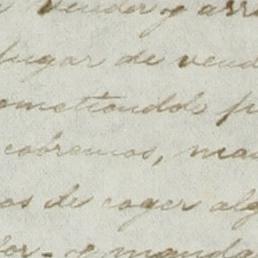 vender y arre
lugar de vend
ometiendole p
cobremos, man
os de coger alg
lor - y manda